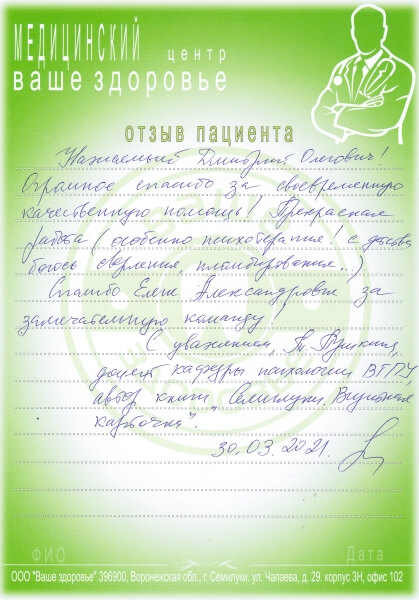 МЕДИЦИНСКИЙ центр
ваше здоровье
отзыв пациента
Уважаемый Дмитрий Олегович!
Огромное спасибо за своевременную
качественную помощь! Прекрасная
работа (особенно психотерапия! с детства
боюсь сверления, пломбирования..)
Спасибо Елене Александровне за
замечательную команду!
С уважением,
доцент кафедры психологии ВГПУ
автор книги "Семилуки. Визитная
карточка".
30.03.2021.
ФИО Дата
ООО "Ваше здоровье" 396900, Воронежская обл., г. Семилуки, ул. Чапаева, д. 29. корпус 3Н, офис 102